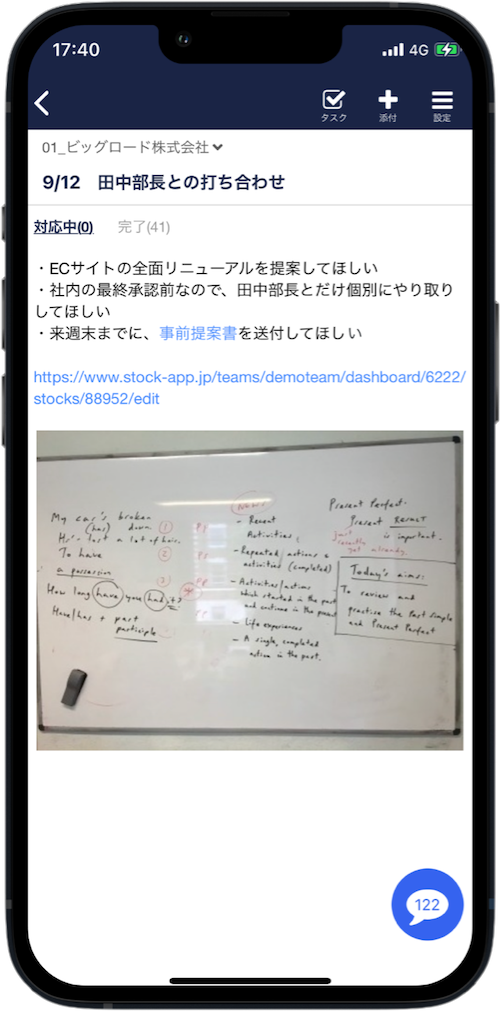 17:40 4G
タスク 添付 設定
01_ビッグロード株式会社
9/12 田中部長との打ち合わせ
対応中(0) 完了(41)
・ECサイトの全面リニューアルを提案してほしい
・社内の最終承認前なので、田中部長とだけ個別にやり取り
してほしい
・来週末までに、事前提案書を送付してほしい
https://www.stock-app.jp/teams/demoteam/dashboard/6222/
stocks/88952/edit
My car's broken
(has) down. 1
lost a lot of hair.
To have 2
a possession
3
How long have you had it?
Have/has + past
participle
- Recent
Activities
- Repeated actions &
activities (completed)
- Activities/actions
which started in the past
and continue in the present
- Life experiences
- A single, completed
action in the past.
Present Perfect.
Present RESULT
is important.
Just
recently
yet already.
Today's aims:
To review and
practise the Past Simple
and Present Perfect
122